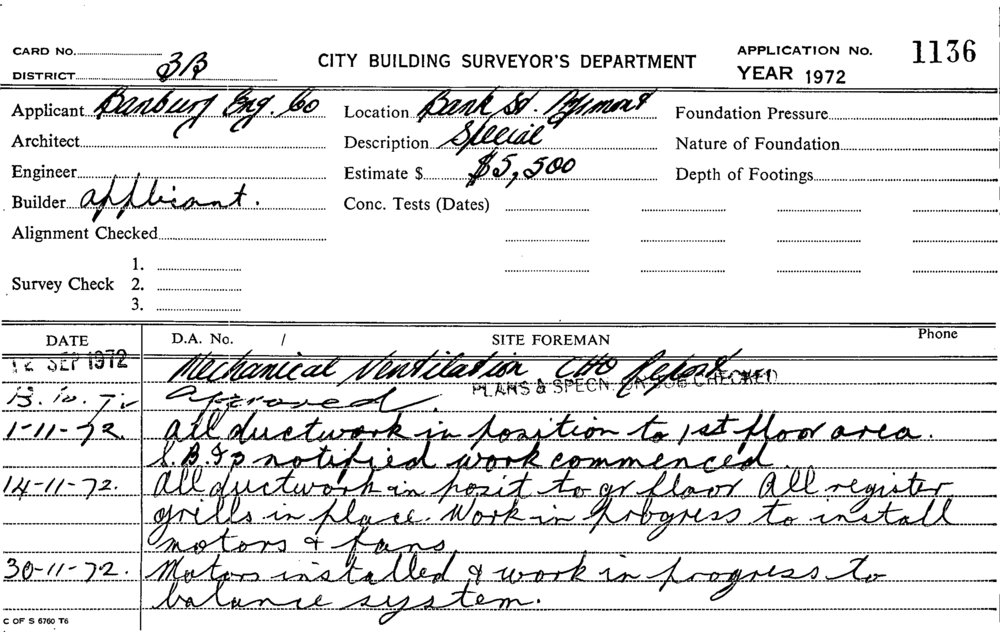 CARD No.
DISTRICT 3B
CITY BUILDING SURVEYOR'S DEPARTMENT
APPLICATION No. 1136
YEAR 1972
Applicant Banbury Eng. Co
Location Bank St. Pyrmont
Foundation Pressure
Architect
Description Special
Nature of Foundation
Engineer
Estimate $ $5,500
Depth of Footings
Builder applicant.
Conc. Tests (Dates)
Alignment Checked
Survey Check 1.
2.
3.
DATE D.A. No. / SITE FOREMAN Phone
12 SEP 1972 Mechanical Ventilation CHO Report
PLANS & SPECN. ON JOB CHECKED
13.10.72 Approved.
1-11-72. All ductwork in position to 1st floor area.
notified work commenced
14-11-72. All ductwork in posit to gr floor All register
grills in place. Work in progress to install
motors & fans
30-11-72. Motors installed & work in progress to
balance system.
C OF S 6760 T6